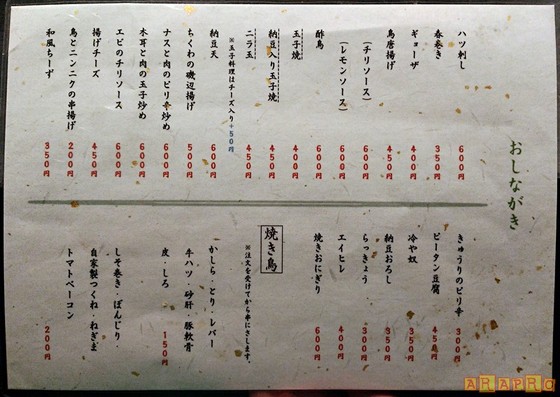 おしながき
ハツ刺し 600円
春巻き 350円
ギョーザ 400円
鳥唐揚げ 450円
(チリソース) 600円
(レモンソース) 600円
酢鳥 600円
玉子焼 400円
納豆入り玉子焼 450円
ニラ玉 450円
※玉子料理はチーズ入り+50円
納豆天 600円
ちくわの磯辺揚げ 500円
ナスと肉のピリ辛炒め 600円
木耳と肉の玉子炒め 600円
エビのチリソース 600円
揚げチーズ 450円
鳥とニンニクの串揚げ 200円
和風ちーず 350円
きゅうりのピリ辛 300円
ピータン豆腐 450円
冷や奴 350円
納豆おろし 350円
らっきょう 300円
エイヒレ 400円
焼きおにぎり 600円
焼き鳥
※注文を受けてから串にさします。
かしら・とり・レバー
牛ハツ・砂肝・豚軟骨
皮・しろ 150円
しそ巻き・ぼんじり・
自家製つくね・ねぎま
トマトベーコン 200円
ARAPRO